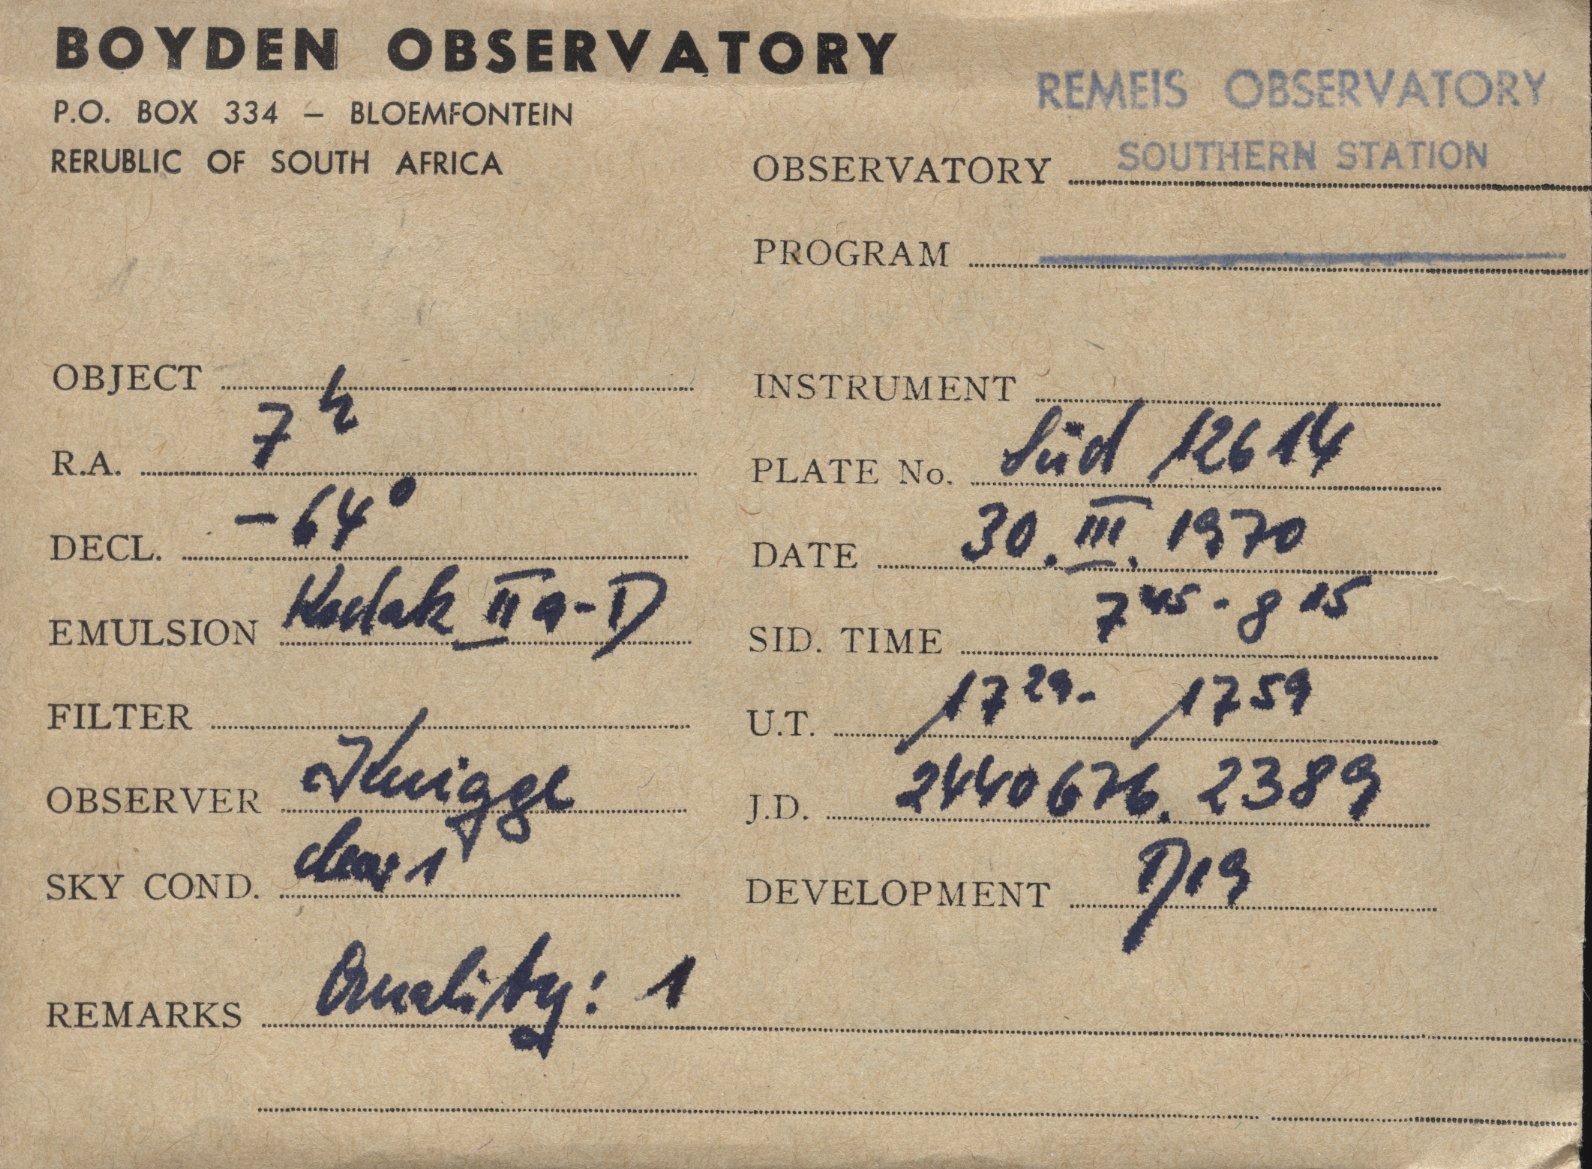 BOYDEN OBSERVATORY
P.O. BOX 334 – BLOEMFONTEIN
RERUBLIC OF SOUTH AFRICA
REMEIS OBSERVATORY
OBSERVATORY SOUTHERN STATION
PROGRAM
OBJECT
INSTRUMENT
R.A. 7h
PLATE No. Süd 12614
DECL. -64°
DATE 30.III.1970
EMULSION Kodak IIa-D
SID. TIME 7 45 - 8 15
FILTER
U.T. 17 29 - 17 59
OBSERVER Knigge
J.D. 2440676.2389
SKY COND. clear 1
DEVELOPMENT D19
REMARKS Quality: 1